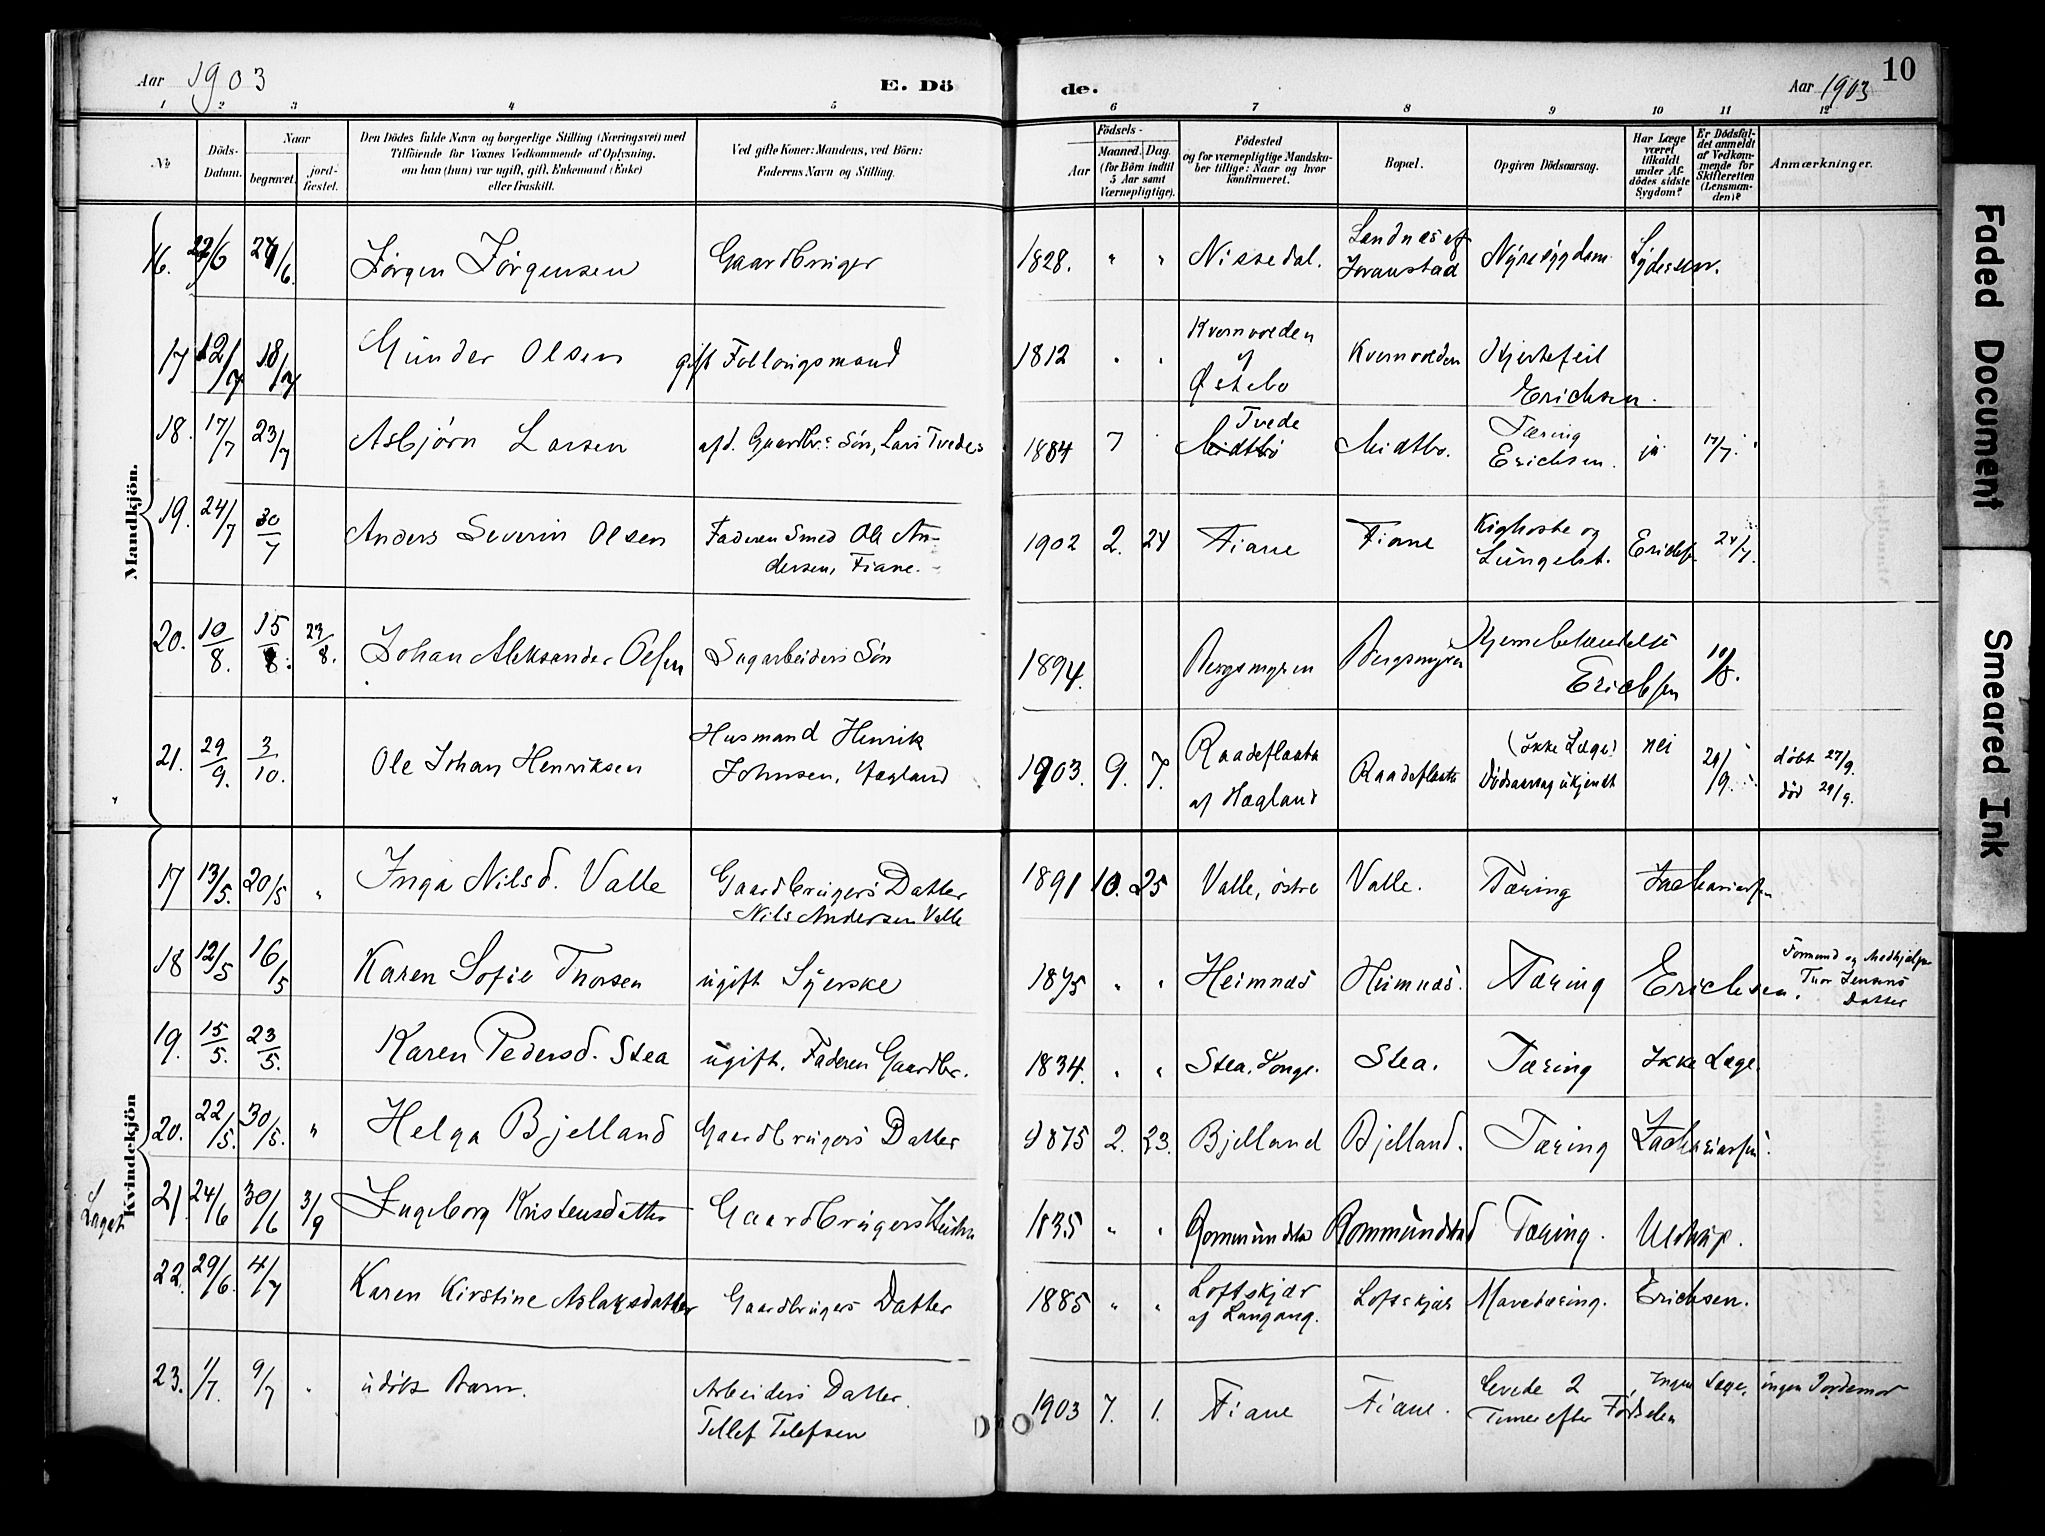 Aar 1903
E. Döde.
Aar 1903
10
1 2 3 4 5 6 7 8 9 10 11 12
No
Döds-Datum.
Naar
begravet.
jord-fæstet.
Den Dödes fulde Navn og borgerlige Stilling (Næringsvei) med
Tilföiende for Voxnes Vedkommende af Oplysning,
om han (hun) var ugift, gift, Enkemand (Enke)
eller fraskilt.
Ved gifte Koner: Mandens, ved Börn:
Faderens Navn og Stilling.
Födsels-
Aar
Maaned.
Dag.
(for Börn indtil
5 Aar samt
Værnepligtige).
Födested
og for værnepligtige Mandska-
ber tillige: Naar og hvor
konfirmeret.
Bopæl.
Opgiven Dödsaarsag.
Har Læge
været
tilkaldt
under Af-
dödes sidste
Sygdom?
Er Dödsfal-
det anmeldt
af Vedkom-
mende for
Skifteretten
(Lensman-
den)?
Anmærkninger.
Mandkjön.
16. 22/6 29/6. Jørgen Jørgensen Gaardbruger 1828. " " Nissedal. Sandnes af Joranstad Nyresygdom Lydersen.
17 12/7 18/7 Gunder Olsen gift Follougsmand 1812 " " Kvernvolden af Østebo Kvernvolden Hjertefeil Erichsen.
18. 17/7 23/7 Asbjørn Larsen afd. Gaardbrs Søn, Lars Tvedes 1884 7 Tvede Midtbø Midtbo. Tæring Erichsen. ja 17/7.
19. 24/7 30/7 Anders Severin Olsen Faderen Smed Ole An-
dersen, Fiane. 1902 2. 24 Fiane Fiane Kighoste og Lungebet. Erichs. 24/7.
20. 10/8. 15/8. 23/8. Johan Aleksander Olsen Sagarbeiders Søn 1894. Bergsmyren Bergsmyren Hjernebetændelse Erichsen 10/8.
21. 29/9. 3/10. Ole Johan Henriksen Husmand Henrik
Johnsen, Hagland 1903. 9. 7. Raadeflaata af Hagland Raadeflaata (ikke Læge) Dödsaarsag ukjendt nei 29/9. døbt 27/9. død 29/9.
Kvindekjön
17 13/5. 20/5 " Inga Nilsd. Valle Gaardbrugers Datter
Nils Andersen Valle 1891 10. 25 Valle, østre Valle. Tæring Zachariassen
18 12/5 16/5 Karen Sofie Thorsen ugift Syerske 1875 " " Heimnes Heimnes. Tæring Erichsen. Formand og Medhjælper
Thor Jensens
Datter
19. 15/5. 23/5. Karen Pedersd. Stea ugift. Faderen Gaardbr. 1834. " " Stea, Songe. Stea. Tæring Ikke Læge.
20. 22/5. 30/5. " Helga Bjelland Gaardbrugers Datter 1875 2. 23. Bjelland Bjelland. Tæring Zachariassen.
21. 24/6 30/6 3/9 Ingeborg Kristensdatter Gaardbrugers 1835 " " Rommundsta Rommundstad Tæring. Ulstrup.
22. 29/6. 4/7 Karen Kirstine Aslaksdatter Gaardbrugers Datter 1885 " " Loftskjær af Langang. Loftskjær Mavetæring. Erichsen.
23. 1/7. 9/7 " udøbt Barn. Arbeiders Datter.
Tellef Telefsen 1903 7. 1. Fiane Fiane. Levede 2
Timer efter Fødselen Ingen Læge, ingen Jordemor
Faded Document
Smeared Ink